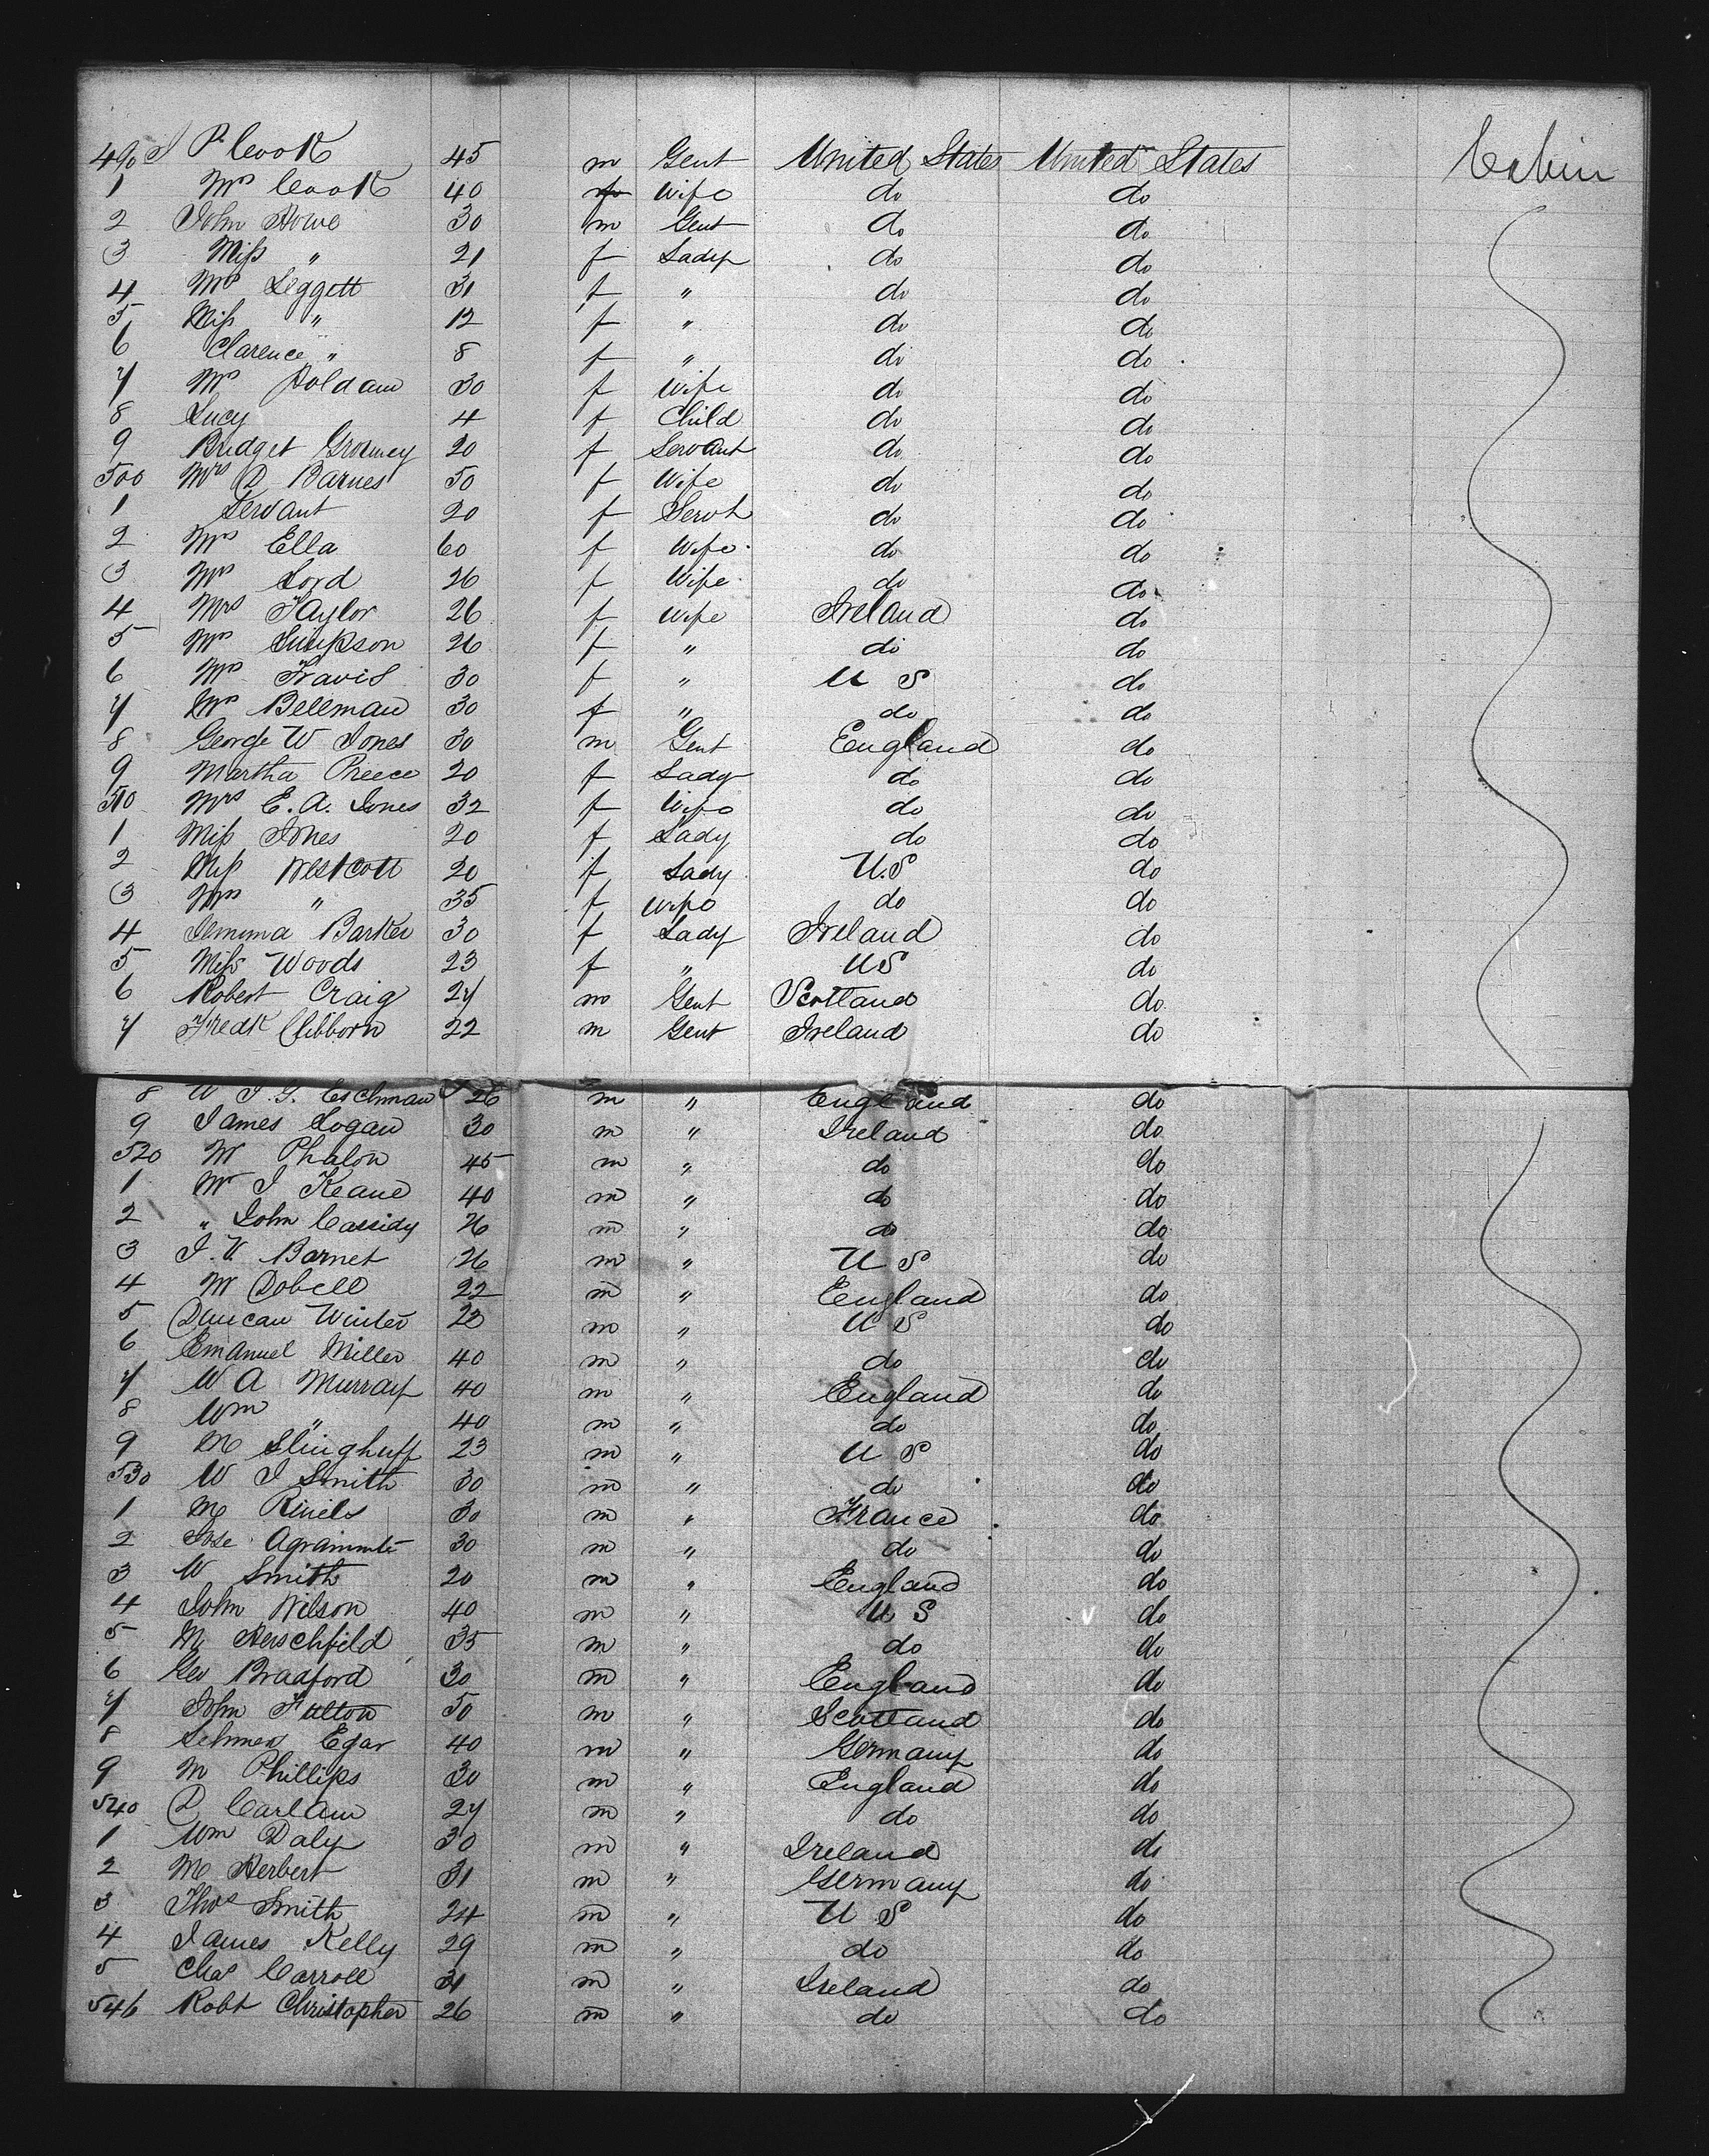 490 J P Cook 45 m Gent United States United States Cabin
1 Mrs Cook 40 f Wife do do
2 John Howe 30 m Gent do do
3 Miss " 21 f Lady do do
4 Mrs Leggett 31 f " do do
5 Miss " 12 f " do do
6 Clarence " 8 f " do do
7 Mrs Holdam 30 f Wife do do
8 Lucy 4 f Child do do
9 Bridget 20 f Servant do do
500 Mrs D Barnes 50 f Wife do do
1 Servant 20 f Servt do do
2 Mrs Ella 60 f Wife do do
3 Mrs Lord 26 f Wife do do
4 Mrs Taylor 26 f Wife Ireland do
5 Mrs Simpson 26 f " do do
6 Mrs Travis 30 f " U S do
7 Mrs Bellman 30 f " do do
8 George W Jones 30 m Gent England do
9 Martha Preece 20 f Lady do do
510 Mrs E. A. Jones 32 f Wife do do
1 Miss Jones 20 f Lady do do
2 Miss Westcott 20 f Lady U.S do
3 Mrs " 35 f Wife do do
4 Jemima Barker 30 f Lady Ireland do
5 Miss Woods 23 f " US do
6 Robert Craig 27 m Gent Scotland do
7 Fredk Clibborn 22 m Gent Ireland do
8 W J. G. Eschman 26 m " England do
9 James Logan 30 m " Ireland do
520 M Phalon 45 m " do do
1 Mr J Keane 40 m " do do
2 " John Cassidy 26 m " do do
3 J. V. Barnet 26 m " U S do
4 Mr Dobell 22 m " England do
5 Duncan Winter 22 m " U S do
6 Emanuel Miller 40 m " do do
7 W A Murray 40 m " England do
8 Wm " 40 m " do do
9 M Slinghuff 23 m " U S do
530 W J Smith 30 m " do do
1 M 30 m " France do
2 Jose Agrammte 30 m " do do
3 W Smith 20 m " England do
4 John Wilson 40 m " U S do
5 M Herschfeld 35 m " do do
6 Geo Bradford 30 m " England do
7 John Fulton 50 m " Scotland do
8 Egar 40 m " Germany do
9 M Phillips 30 m " England do
540 D Carlaw 27 m " do do
1 Wm Daly 30 m " Ireland do
2 M Herbert 31 m " Germany do
3 Thos Smith 24 m " U S do
4 James Kelly 29 m " do do
5 Chas Carroll 31 m " Ireland do
546 Robt Christopher 26 m " do do